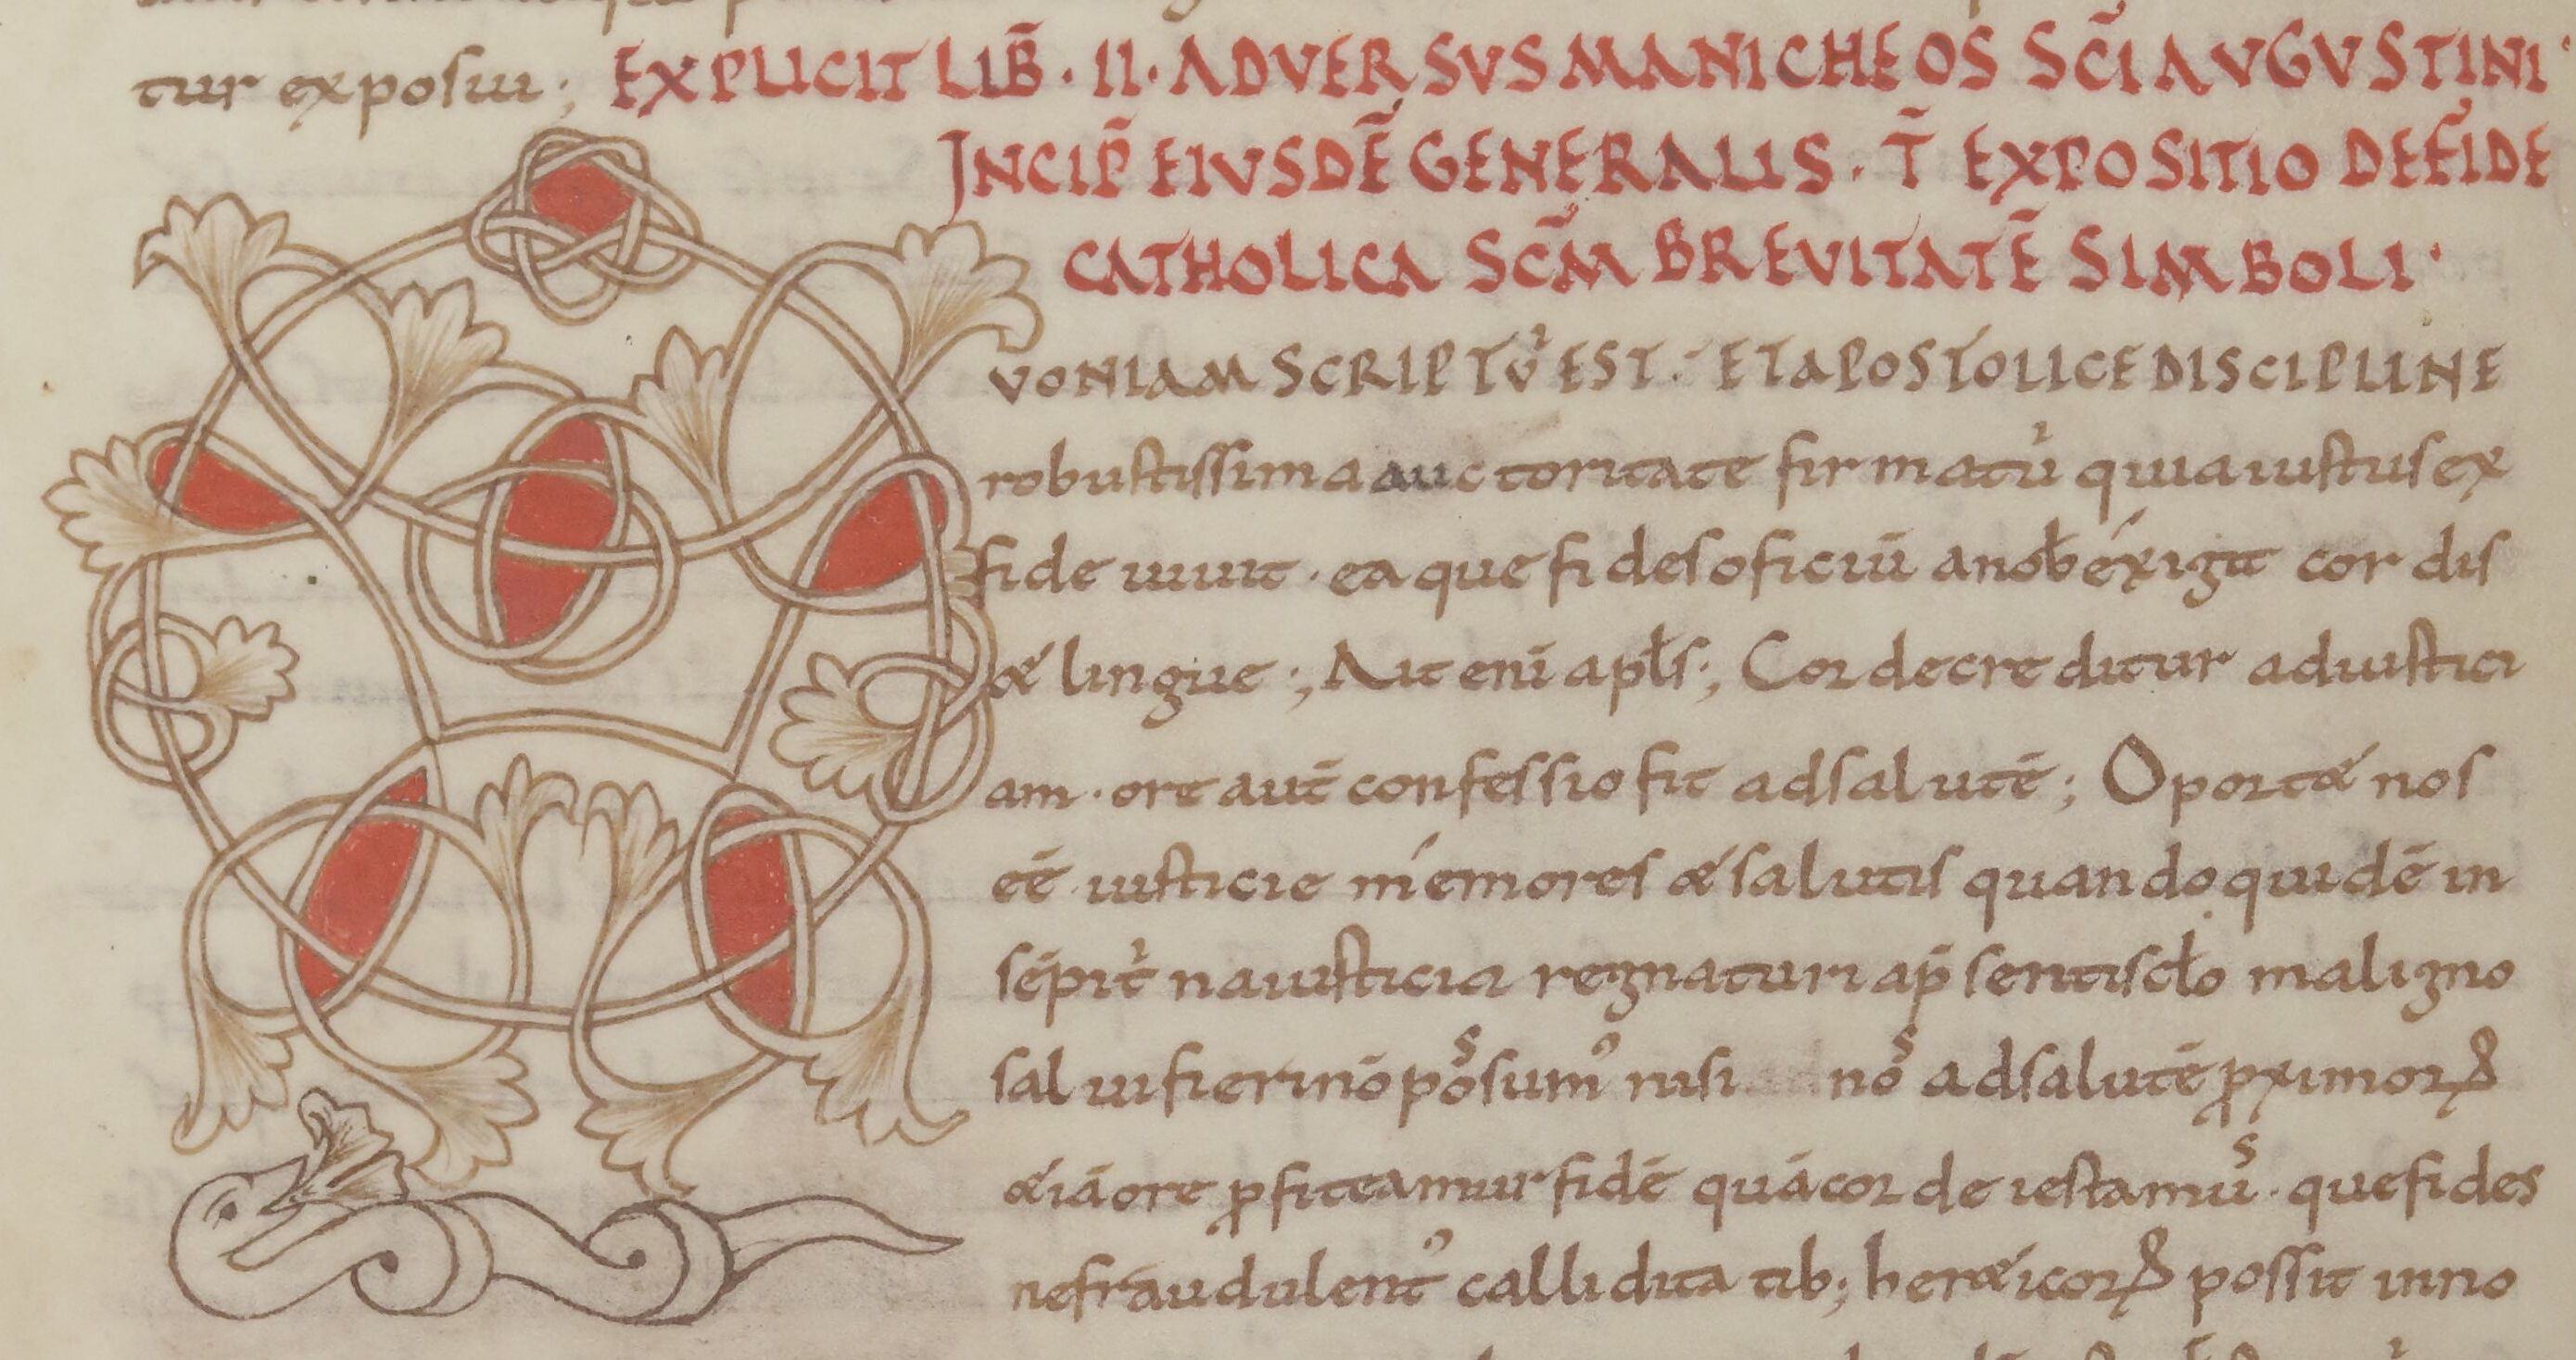 tur exposui; EXPLICIT LIB̄ · II · ADVERSVS MANICHEOS SC̄I AVGVSTINI·
INCIP̄ EIVSDĒ GENERALIS · T̄ EXPOSITIO DE FIDE
CATHOLICA SC̄M BREVITATĒ SIMBOLI·
VONIAM SCRIPTŪ EST· ET APOSTOLICE DISCIPLINE
robustissima auctoritate firmatur quia iustus ex
fide uiuit · ea que fides oficiū a nob̄ éxigit cordis
& lingue; Ait eni̅ apl̄s; Cor de creditur ad iustici
am · ore aut̄ confessio fit ad salutē; Oport& nos
eē iusticie mémores & salutis quando quidē in
sēpit̓na iusticia regnaturi a p̄senti scl̄o maligno
salui fieri nō possum᾿ nisi nos ad salutē ꝓximoꝝ
&iā ore ꝓfiteamur fidē quā corde iestamus · que fides
ne fraudulent᾿ calliditatib; her&icoꝝ possit in no